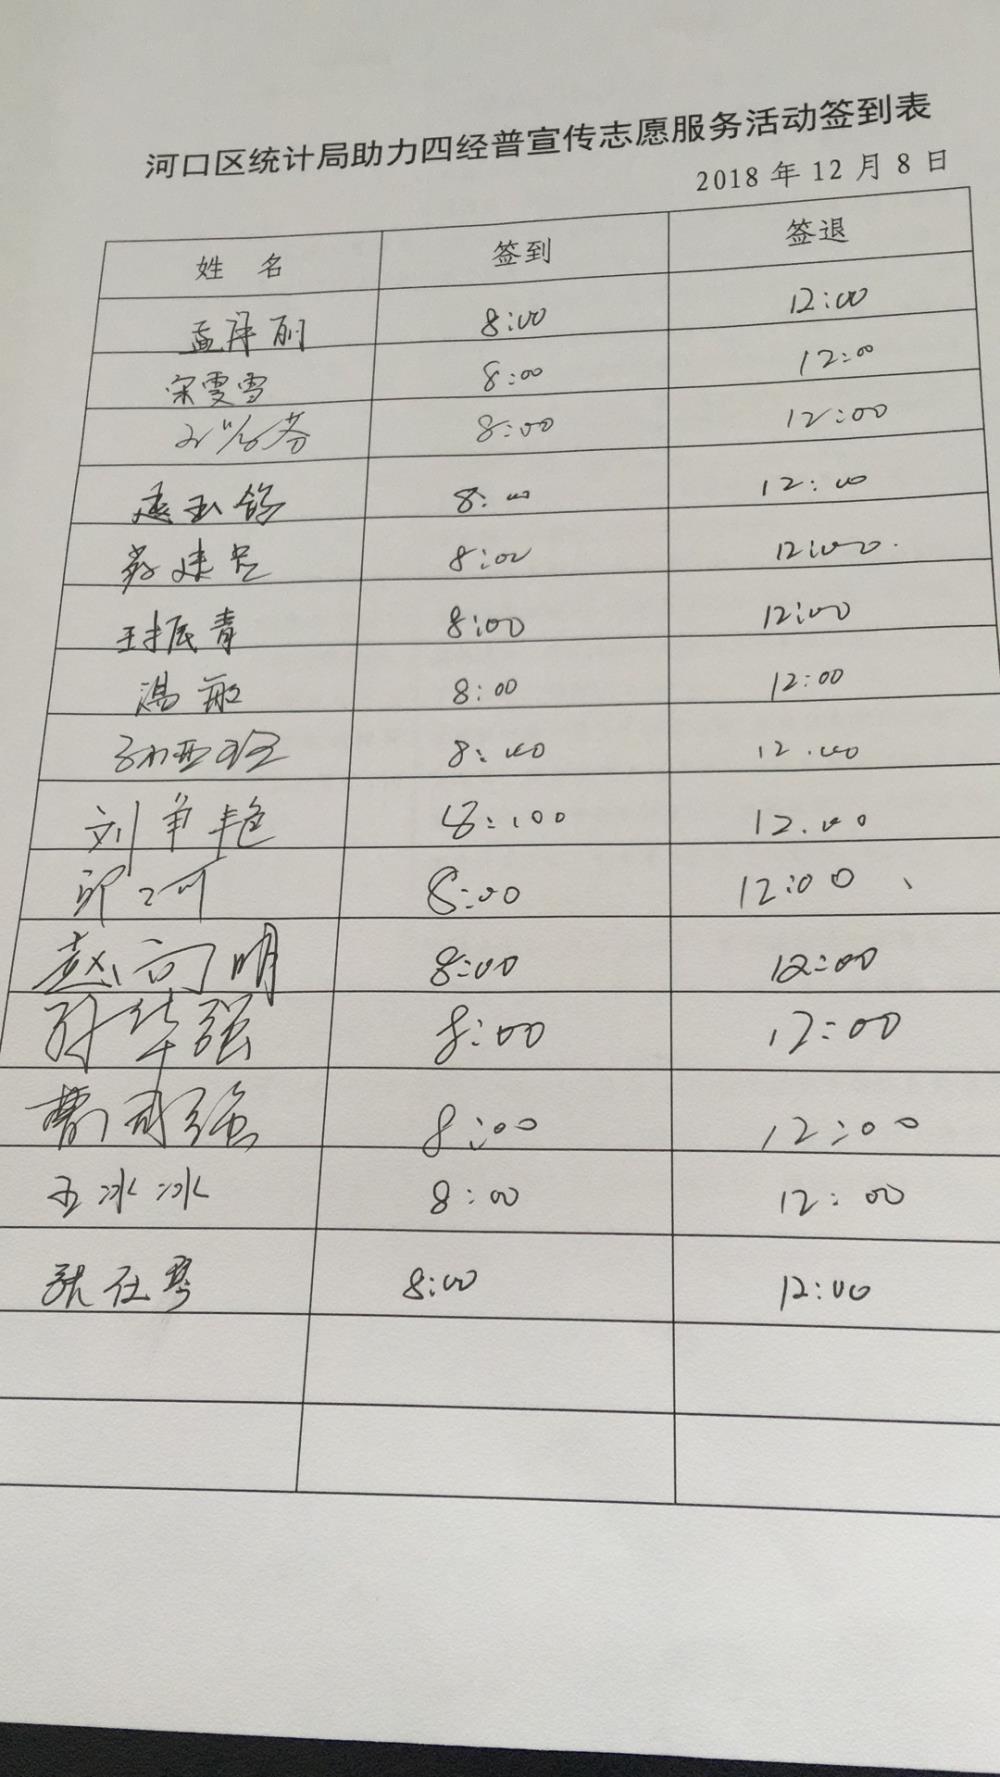 河口区统计局助力四经普宣传志愿服务活动签到表
2018 年 12 月 8 日
姓 名 签到 签退
8:00 12:00
宋雯雪 8:00 12:00
8:00 12:00
8:00 12:00
8:00 12:00.
王振青 8:00 12:00
温敏 8:00 12:00
8:00 12.00
刘争艳 8:00 12.00
8:00 12:00、
赵向明 8:00 12:00
孙华强 8:00 12:00
8:00 12:00
王冰冰 8:00 12:00
张仕琴 8:00 12:00